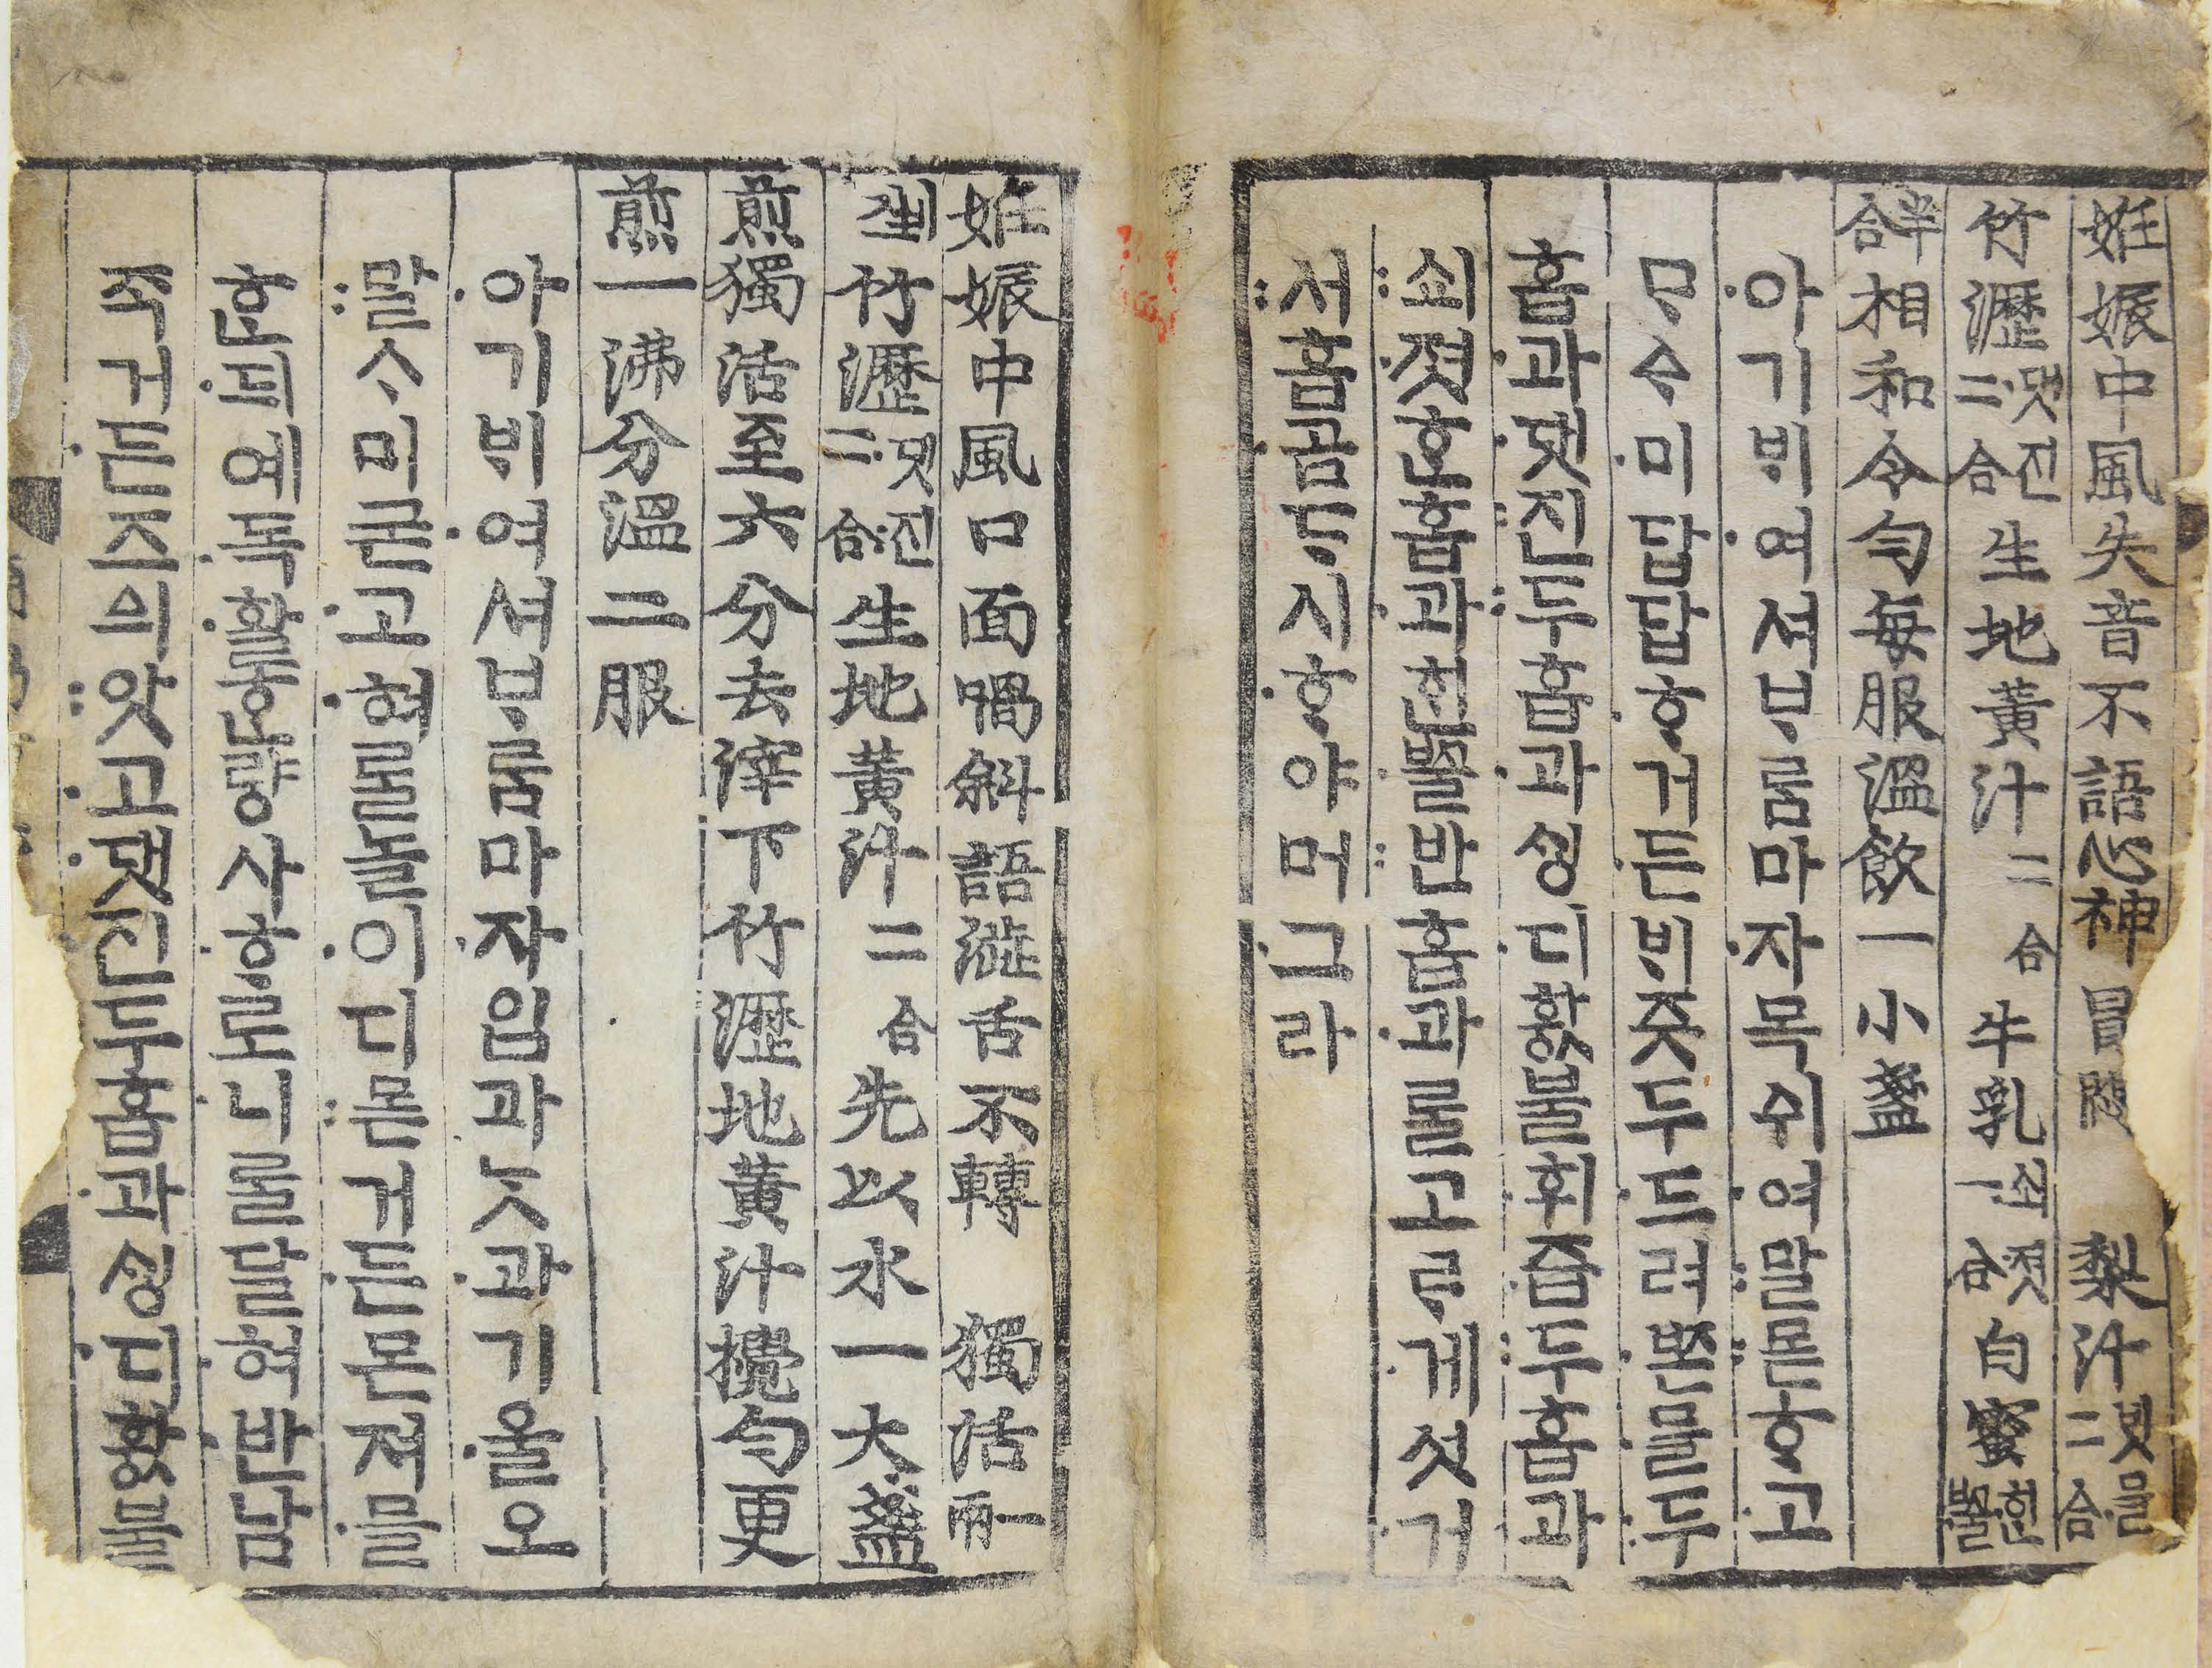 姙娠中風失音不語心神冒悶 梨汁ᄇᆡᆺ믈二合
竹瀝댓진二合生地黃汁二合牛乳쇠졋一合白蜜ᄒᆡᆫᄢᅮᆯ
半合相和令勻每服溫飮一小盞
아기ᄇᆡ여셔ᄇᆞᄅᆞᆷ마자목쉬여말몯ᄒᆞ고
ᄆᆞᅀᆞ미답답ᄒᆞ거든ᄇᆡ즛두드려ᄧᅩᆫ믈두
홉과댓진두홉과ᄉᆡᆼ디홧불휘즙두홉과
쇠졋ᄒᆞᆫ홉과ᄒᆡᆫᄢᅮᆯ반홉과ᄅᆞᆯ고ᄅᆞ게섯거
서홉곰ᄃᆞ시ᄒᆞ야머그라
姙娠中風口面喎斜語澁舌不轉 獨活一兩
剉竹瀝댓진二合生地黃汁二合先以水一大盞
煎獨活至六分去滓下竹瀝地黃汁攪勻更
煎一沸分溫二服
아기ᄇᆡ여셔ᄇᆞᄅᆞᆷ마자입과ᄂᆞᆺ과기울오
말ᄉᆞ미굳고혀ᄅᆞᆯ놀이디몯거든몬져믈
ᄒᆞᆫ되예독활ᄒᆞᆫ량사ᄒᆞ로니ᄅᆞᆯ달혀반남
죽거든즈의앗고댓진두홉과ᄉᆡᆼ디홧믈